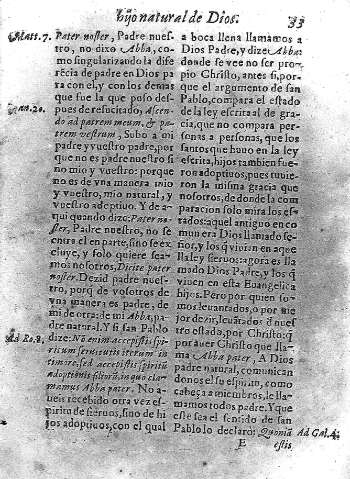 hijo natural de Dios. 33
Matt. 7.
Pater noster, Padre nues-
tro, no dixo Abba, co-
mo singularizando la dife-
rēcia de padre en Dios pa
ra con el, y con los demas
que fue la que puso des-
pues de resucitado, Ascen-
Ioan. 20.
do ad patrem meum, & pa-
trem vestrum, Subo a mi
padre y vuestro padre, por
que no es padre nuestro si
no mio y vuestro: porque
no es de vna manera mio
y vuestro, mio natural, y
vuestro adoptiuo. Y de a-
qui quando dize: Pater no-
ster, Padre nuestro, no se
entra el en parte, sino se ex
cluye, y solo quiere sea-
mos nosotros, Dicite pater
noster. Dezid padre nues-
tro, porq̄ de vosotros de
vna manera es padre, de
mi de otra: de mi Abba, pa-
dre natural. Y si san Pablo
Ad Ro. 8.
dize: No enim accepistis spi-
ritum seruitutis iterum in
timore, sed accepistis spiritū
adoptionis filiorū, in quo cla-
mamus Abba pater. No a-
ueis recebido otra vez es-
piritu de sieruos, sino de hi-
jos adoptiuos, con el qual
a boca llena llamamos a
Dios Padre, y dize Abba:
donde se vee no ser pro-
pio Christo, antes si, por-
que el argumento de san
Pablo, compara el estado
de la ley escrita al de gra-
cia, que no compara per-
sonas a personas, que los
santos que huuo en la ley
escrita, hijos tambien fue-
ron adoptiuos, pues tuuie-
ron la misma gracia que
nosotros, de donde la com
paracion solo mira los es-
tados: aquel antiguo en co
mun era Dios llamado se-
ñor, y los q̄ viuian en aque
lla ley sieruos: agora es lla
mado Dios Padre, y los q̄
viuen en esta Euangelica
hijos. Pero por quien so-
mos leuantados, o por me
jor dezir, leuātados â nues
tro estado, por Christo: q̄
por auer Christo que lla-
ma Abba pater, A Dios
padre natural, comunican
donos el su espiritu, como
cabeça a miembros, le lla-
mamos todos padre. Y que
este sea el sentido de san
Pablo lo declaro: Quoniā
Ad Gal. 4.
E estis